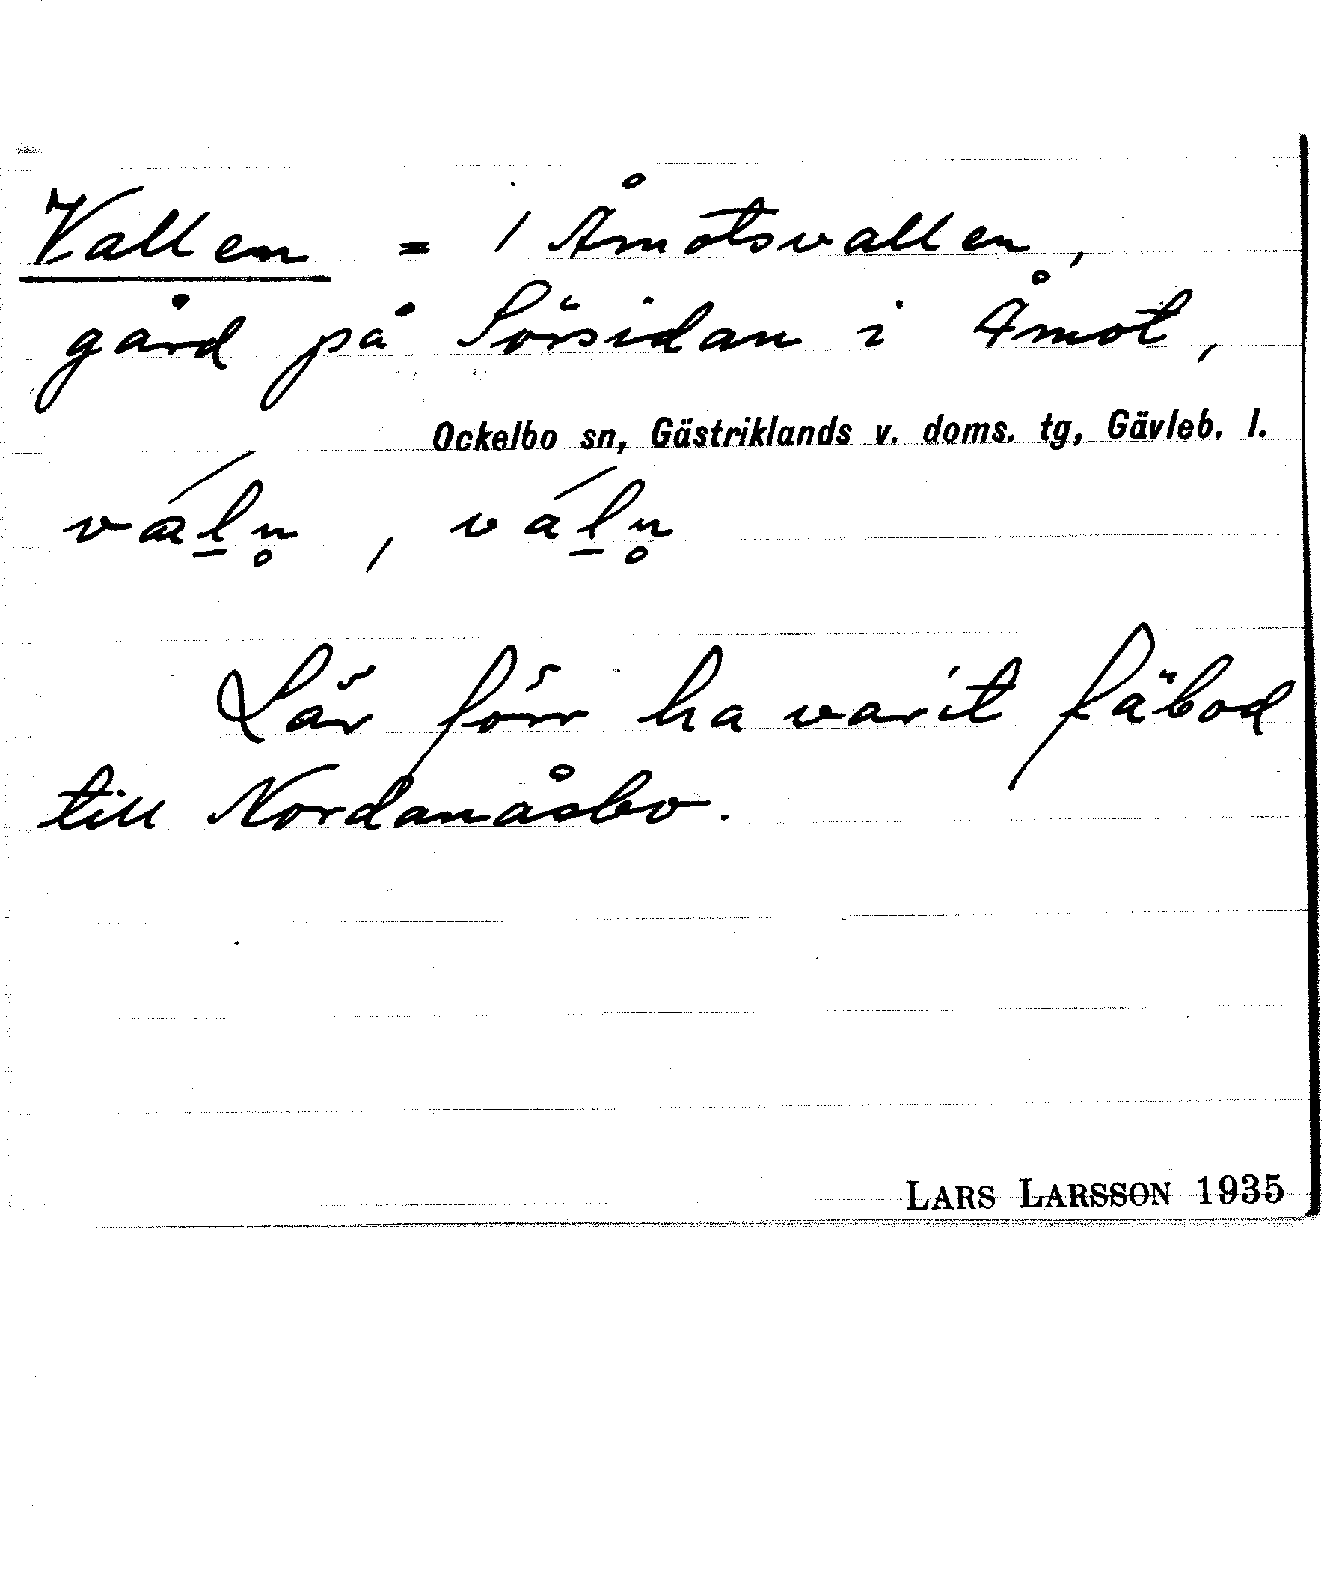 Vallen = 1 Åmotsvallen,
gård på Sörsidan i Åmot,
Ockelbo sn, Gästriklands v. doms. tg, Gävleb. l.
vál̲n̥, vál̲n̥
Lär förr ha varit fäbod
till Nordanåsbo.
LARS LARSSON 1935